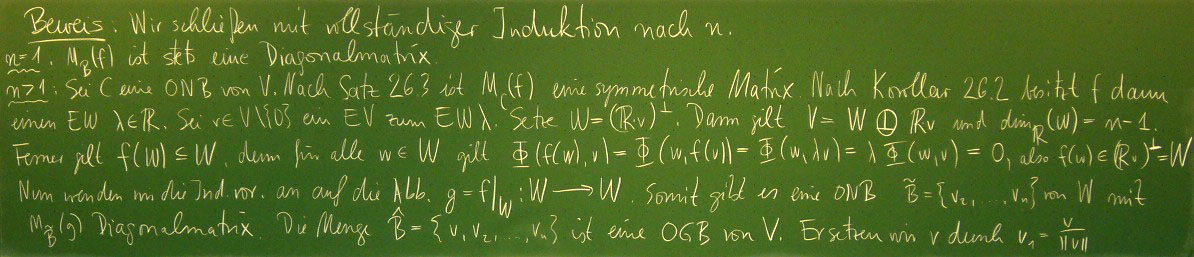 Beweis: Wir schließen mit vollständiger Induktion nach n.
n=1: M_B(f) ist stets eine Diagonalmatrix.
n>1: Sei C eine ONB von V. Nach Satz 26.3 ist M_C(f) eine symmetrische Matrix. Nach Korollar 26.2 besitzt f dann
einen EW λ∈ℝ. Sei v∈V\{0} ein EV zum EW λ. Setze W=(ℝv)^⊥. Dann gilt V = W ⊕ ℝv und dim_ℝ(W) = n-1.
Ferner gilt f(W) ⊆ W, denn für alle w∈W gilt Φ(f(w),v) = Φ(w,f(v)) = Φ(w,λv) = λ Φ(w,v) = 0, also f(w)∈(ℝv)^⊥=W
Nun wenden wir die Ind.vor. an auf die Abb. g = f|_W : W ⟶ W. Somit gibt es eine ONB B̃ = {v_2,...,v_n} von W mit
M_B̃(g) Diagonalmatrix. Die Menge B̂ = {v, v_2,...,v_n} ist eine OGB von V. Ersetzen wir v durch v_1 = v/||v||